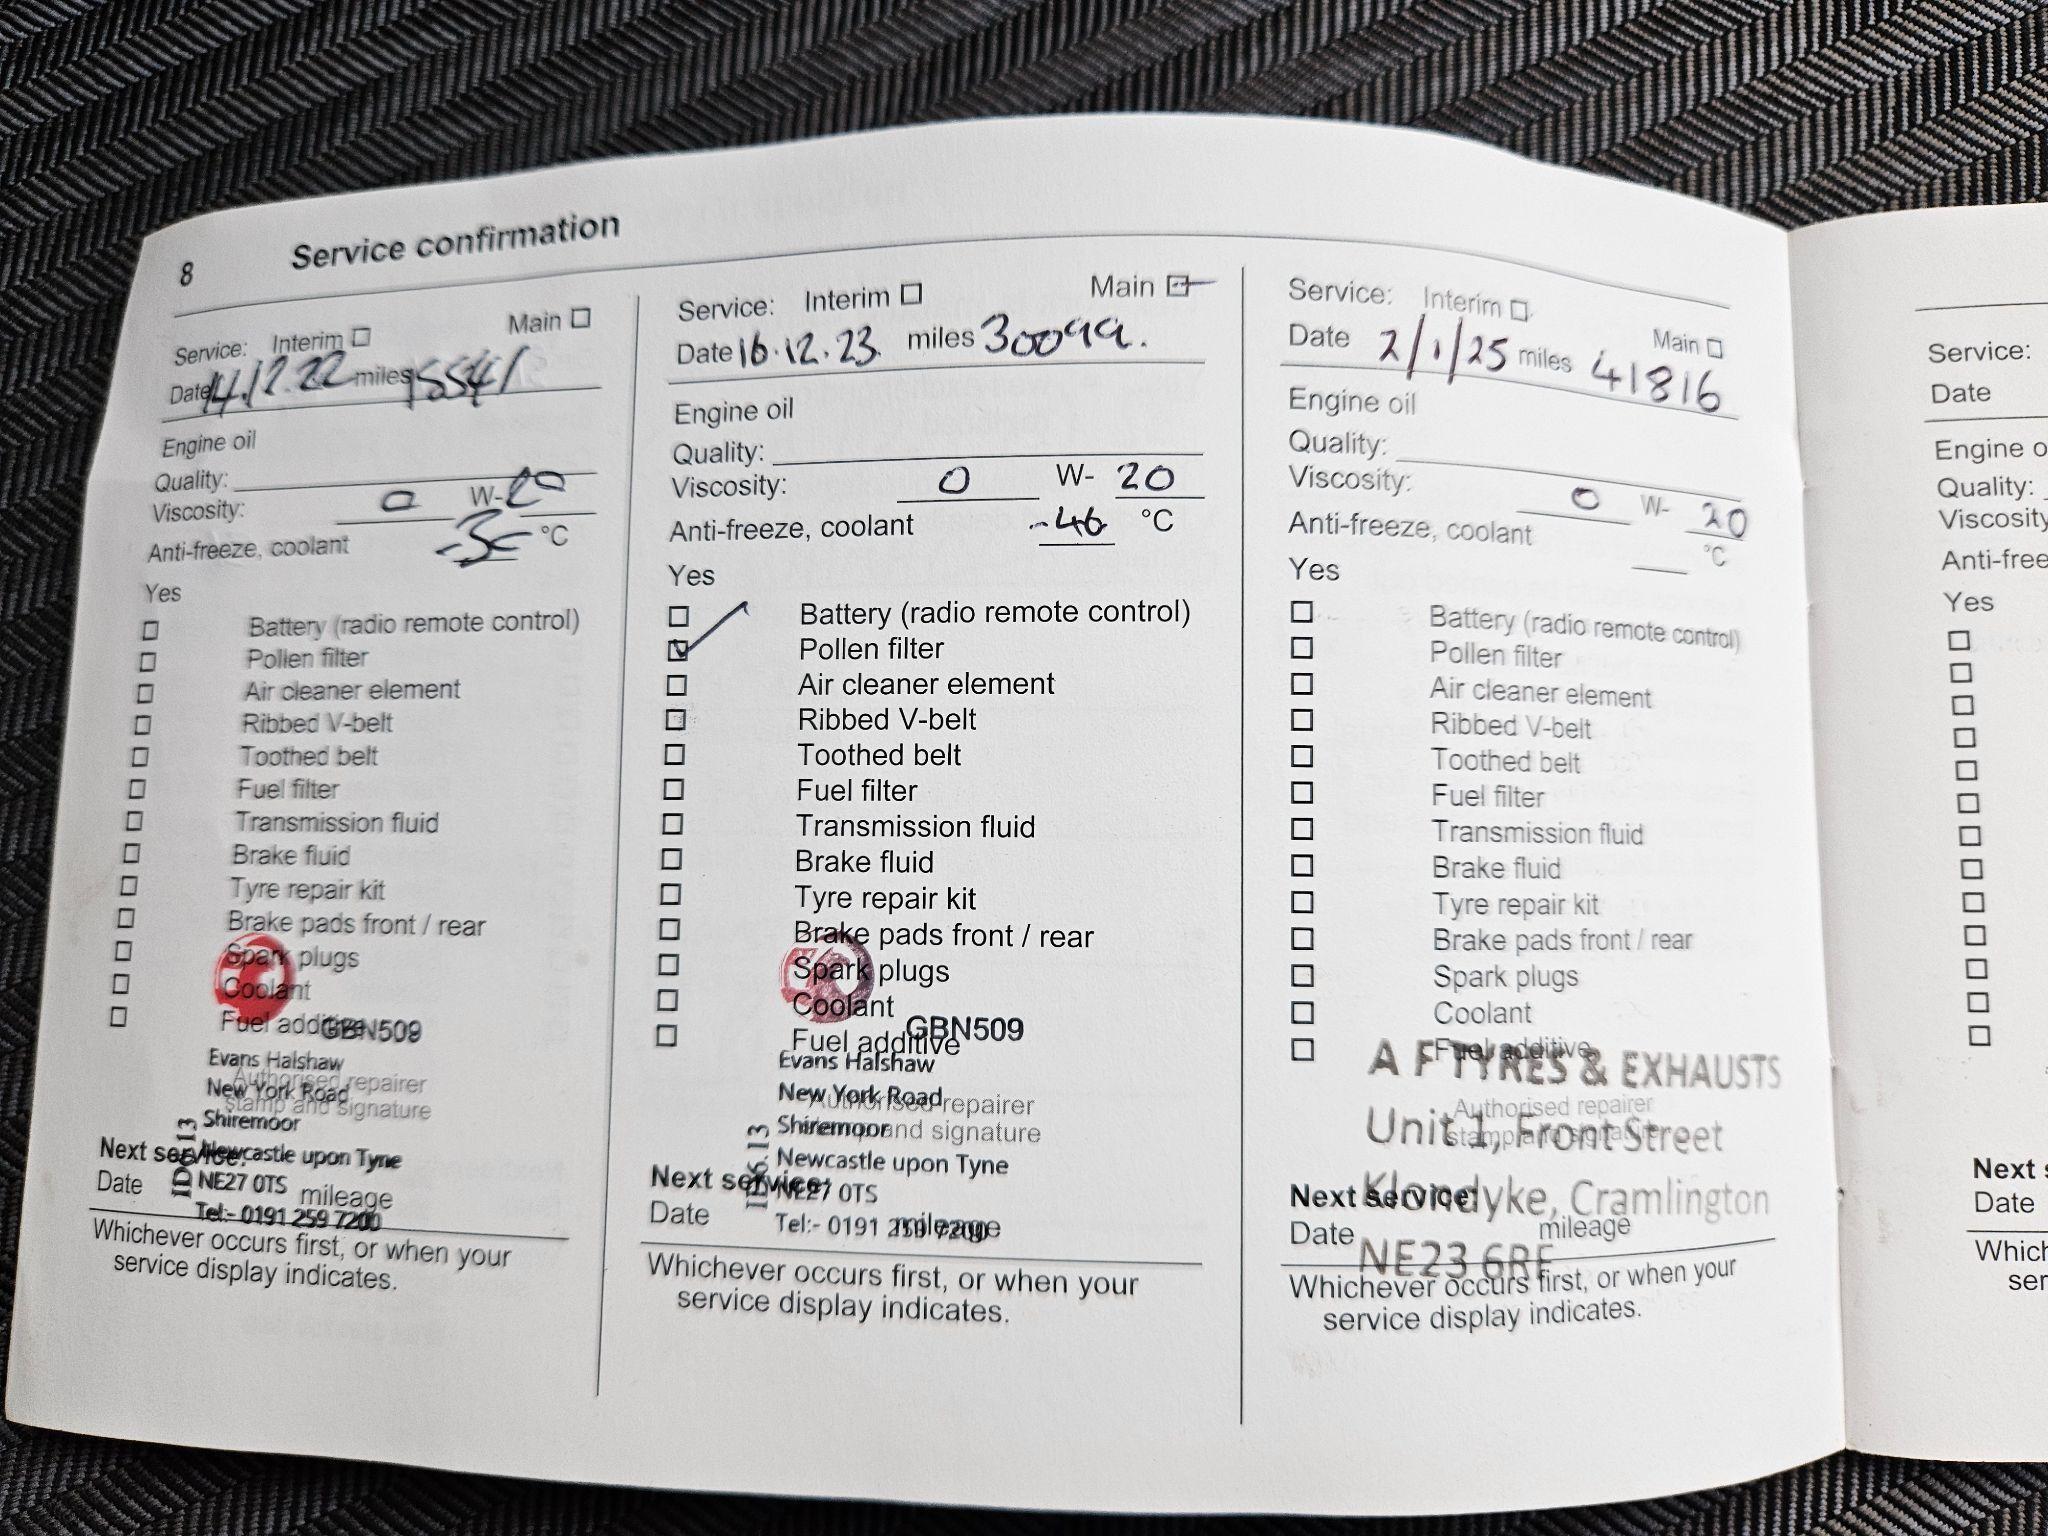 8 Service confirmation
Service: Interim Main
Date 14.12.22 miles 15541
Engine oil
Quality:
Viscosity: 0 W- 20
Anti-freeze, coolant °C
Yes
Battery (radio remote control)
Pollen filter
Air cleaner element
Ribbed V-belt
Toothed belt
Fuel filter
Transmission fluid
Brake fluid
Tyre repair kit
Brake pads front / rear
Spark plugs
Coolant
Fuel additive
GBN509
Evans Halshaw
Authorised repairer
New York Road
stamp and signature
Shiremoor
Next service:
Newcastle upon Tyne
NE27 0TS
Date mileage
Tel:- 0191 259 7200
Whichever occurs first, or when your
service display indicates.
Service: Interim Main
Date 16.12.23 miles 30099.
Engine oil
Quality:
Viscosity: 0 W- 20
Anti-freeze, coolant -46 °C
Yes
Battery (radio remote control)
Pollen filter
Air cleaner element
Ribbed V-belt
Toothed belt
Fuel filter
Transmission fluid
Brake fluid
Tyre repair kit
Brake pads front / rear
Spark plugs
Coolant
GBN509
Fuel additive
Evans Halshaw
New York Road
Authorised repairer
Shiremoor
stamp and signature
Newcastle upon Tyne
Next service:
NE27 0TS
Date mileage
Tel:- 0191 259 7200
Whichever occurs first, or when your
service display indicates.
Service: Interim Main
Date 2/1/25 miles 41816
Engine oil
Quality:
Viscosity: 0 W- 20
Anti-freeze, coolant °C
Yes
Battery (radio remote control)
Pollen filter
Air cleaner element
Ribbed V-belt
Toothed belt
Fuel filter
Transmission fluid
Brake fluid
Tyre repair kit
Brake pads front / rear
Spark plugs
Coolant
Fuel additive
A F TYRES & EXHAUSTS
Authorised repairer
Unit 1, Front Street
stamp and signature
Klondyke, Cramlington
Next service:
Date mileage
NE23 6RF
Whichever occurs first, or when your
service display indicates.
Service:
Date
Engine o
Quality:
Viscosity
Anti-free
Yes
Next s
Date
Which
ser